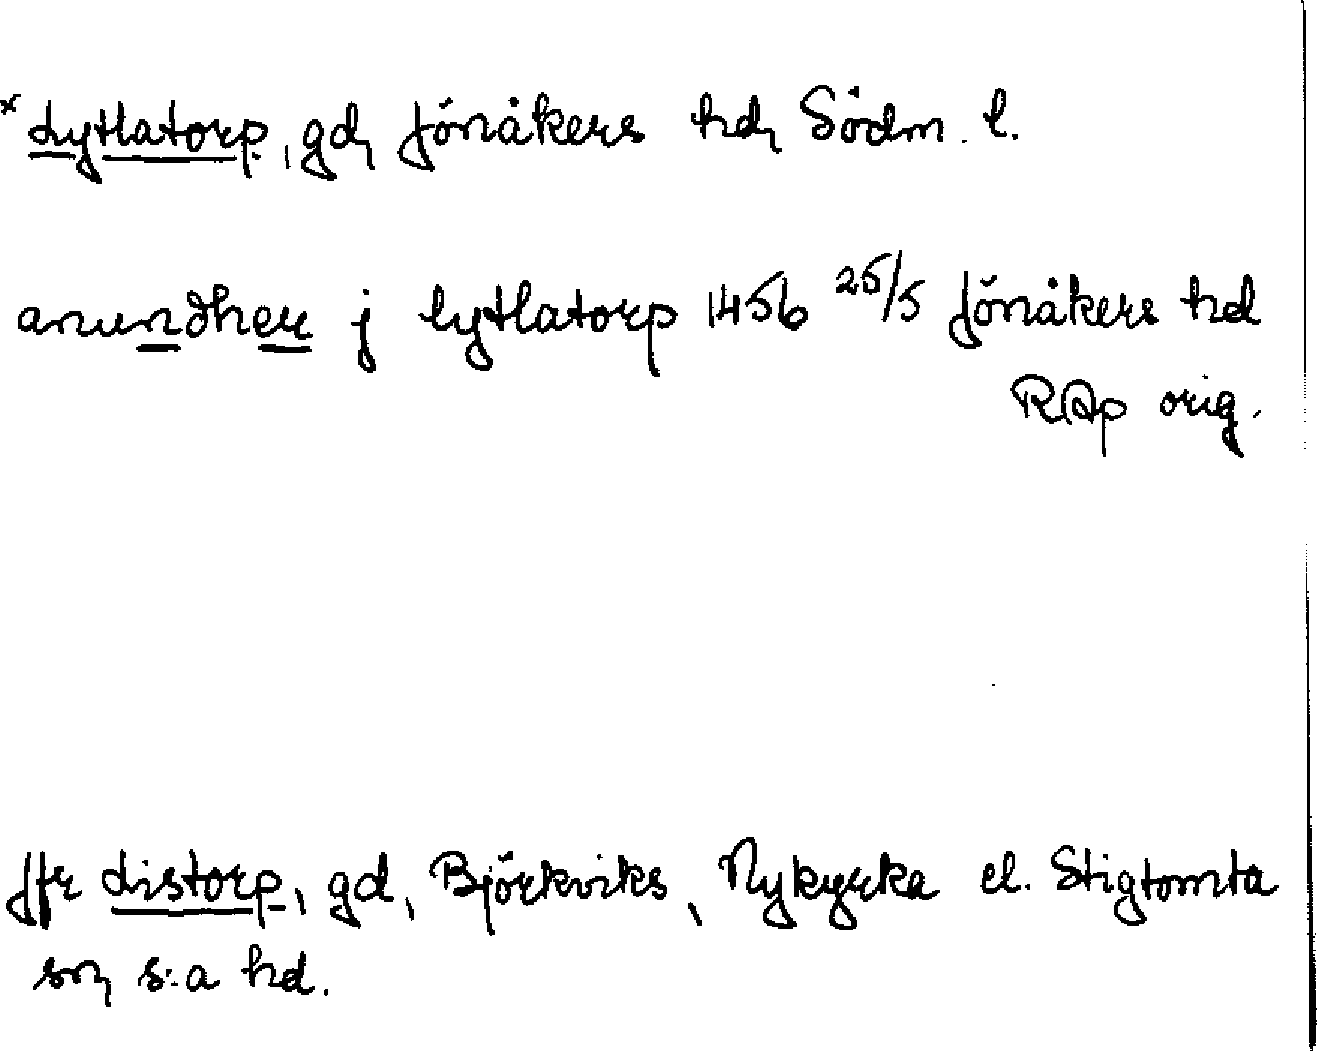 * Lytlatorp, gd, Jönåkers hd, Södm. l.
anundher j lytlatorp 1456 25/5 Jönåkers hd
RAp orig.
Jfr Listorp, gd, Björkviks, Nykyrka el. Stigtomta
sn, s:a hd.